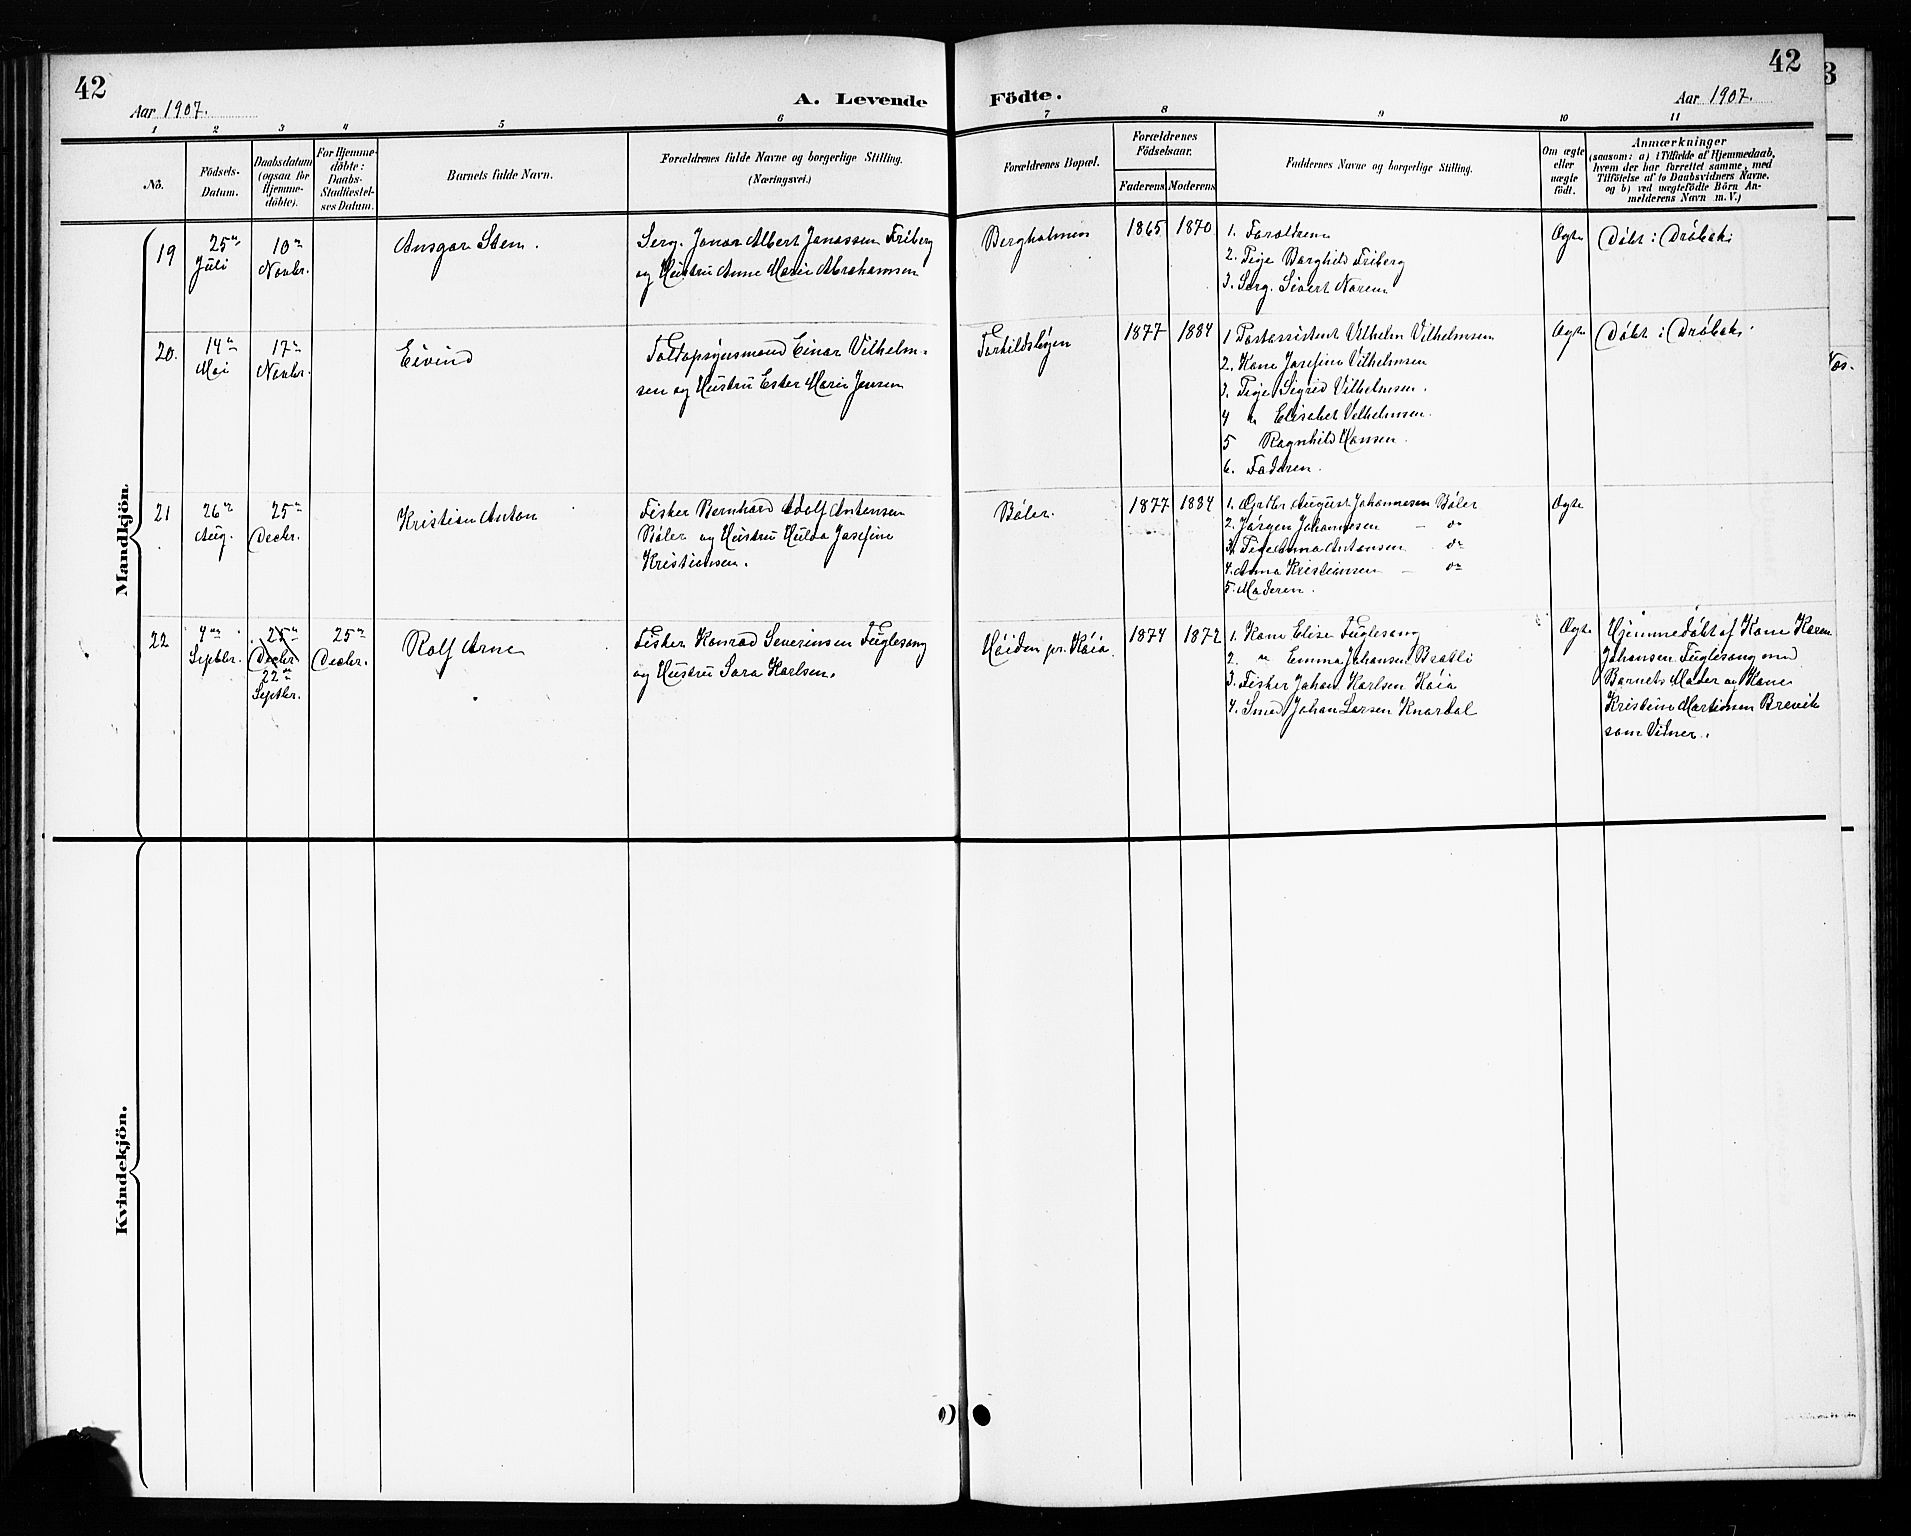 42
Aar 1907.
A. Levende
Födte.
42
Aar 1907.
1 2 3 4 5 6 7 8 9 10 11
No.
Födsels-
Datum.
Daabsdatum
(ogsaa for
Hjemme-
döbte).
For Hjemme-
döbte:
Daabs-
Stadfæstel-
ses Datum.
Barnets fulde Navn.
Forældrenes fulde Navne og borgerlige Stilling.
(Næringsvei.)
Forældrenes Bopæl.
Forældrenes
Födselsaar.
Faderens
Moderens
Faddernes Navne og borgerlige Stilling.
Om ægte
eller
uægte
födt.
Anmærkninger
(saasom: a) i Tilfælde af Hjemmedaab,
hvem der har forrettet samme, med
Tilföielse af to Daabsvidners Navne.
og b) ved uægtefödte Börn An-
melderens Navn m. V.)
Mandkjön.
19
25de
Juli
10de
Novbr.
Ansgar Sten.
Serg. Jonas Albert Jonassen Friberg
og Hustru Anne Marie Abrahamsen
Bergholmen
1865
1870
1. Forældrene
2. Pige Borghild Friberg
3. Serg. Sivert Norem
Ægte
Döbt i Dröbak
20.
14de
Mai
17de
Novbr.
Eivind
Toldopsynsmand Einar Vilhelm-
sen og Hustru Ester Marie Jensen
Torkildsbyen
1877
1884
1 Postassistent Vilhelm Vilhelmsen
2. Kone Josefine Vilhelmsen
3. Pige Sigrid Vilhelmsen.
4 " Elisabet Vilhelmsen.
5 Ragnhild Hansen.
6. Faderen.
Ægte
Döbt i Dröbak.
21
26de
Aug.
25de
Decbr.
Kristian Anton
Fisker Bernhard Adolf Antonsen
Böler og Hustru Hulda Josefine
Kristiansen.
Böler.
1877
1884
1. August Johannesen Böler
2. Jörgen Johannesen — do
3. Pige Anna Antonsen do
4. Anna Kristiansen — do
5. Moderen.
Ægte
22
4de
Septbr.
25de
Decbr
22de
Septbr.
25de
Decbr.
Rolf Arne
Fisker Konrad Severinsen Fuglesang
og Hustru Sara Karlsen.
Höiden pr. Köia
1874
1872
1. Kone Elise Fuglesang
2. " Emma Johansen Bratli
3. Fisker Johan Karlsen Köia
4. Smed Johan Larsen Knardal
Ægte
Hjemmedöbt af Kone Karen
Johansen Fuglesang med
Barnets Moder og Kone
Kristine Martinsen Brevik
som Vidner.
Kvindekjön.